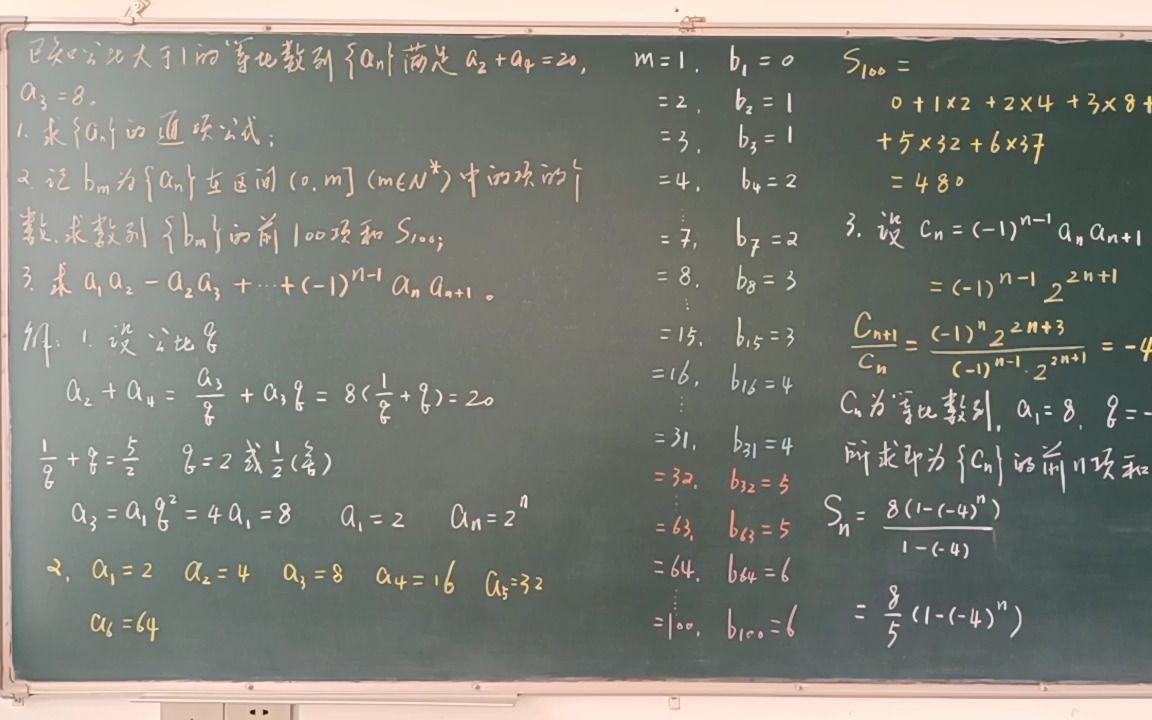 已知公比大于1的等比数列{an}满足 a₂+a₄=20,
a₃=8.
1. 求{an}的通项公式;
2. 记 bm为{an}在区间(0.m](m∈N*)中的项的个
数,求数列{bm}的前100项和 S₁₀₀;
3. 求 a₁a₂-a₂a₃+⋯+(-1)ⁿ⁻¹ an an+1。
解: 1. 设公比q
a₂+a₄ = a₃/q + a₃q = 8(1/q+q)=20
1/q+q=5/2 q=2 或 1/2(舍)
a₃=a₁q²=4a₁=8 a₁=2 an=2ⁿ
2. a₁=2 a₂=4 a₃=8 a₄=16 a₅=32
a₆=64
m=1. b₁=0
=2. b₂=1
=3. b₃=1
=4. b₄=2
⋮
=7. b₇=2
=8. b₈=3
⋮
=15. b₁₅=3
=16. b₁₆=4
⋮
=31. b₃₁=4
=32. b₃₂=5
=63. b₆₃=5
=64. b₆₄=6
⋮
=100. b₁₀₀=6
S₁₀₀=
0+1×2+2×4+3×8+
+5×32+6×37
=480
3. 设 Cn=(-1)ⁿ⁻¹ an an+1
=(-1)ⁿ⁻¹ 2²ⁿ⁺¹
Cn+1/Cn = (-1)ⁿ2²ⁿ⁺³/(-1)ⁿ⁻¹·2²ⁿ⁺¹ = -4
Cn为等比数列. a₁=8. q=-
所求即为{Cn}的前n项和
Sn = 8(1-(-4)ⁿ)/1-(-4)
= 8/5 (1-(-4)ⁿ)